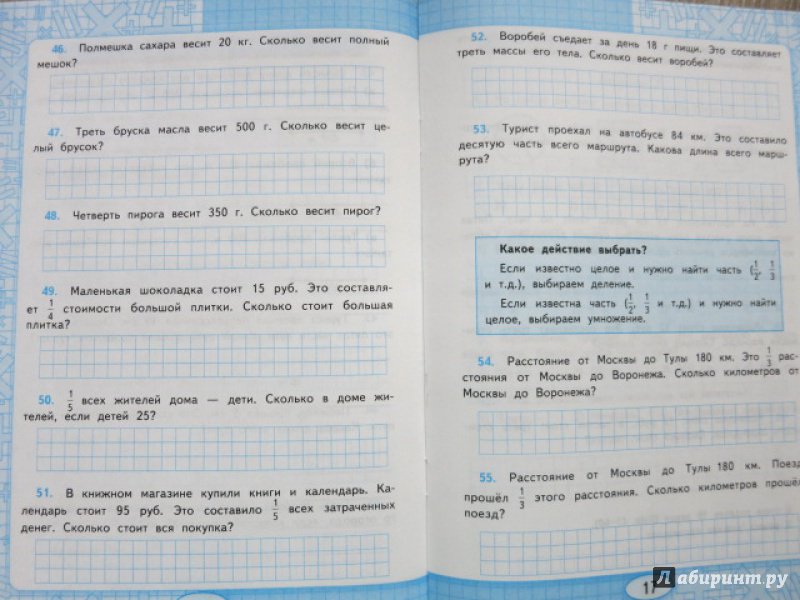 46. Полмешка сахара весит 20 кг. Сколько весит полный
мешок?
47. Треть бруска масла весит 500 г. Сколько весит це-
лый брусок?
48. Четверть пирога весит 350 г. Сколько весит пирог?
49. Маленькая шоколадка стоит 15 руб. Это составля-
ет 1/4 стоимости большой плитки. Сколько стоит большая
плитка?
50. 1/5 всех жителей дома — дети. Сколько в доме жи-
телей, если детей 25?
51. В книжном магазине купили книги и календарь. Ка-
лендарь стоит 95 руб. Это составило 1/5 всех затраченных
денег. Сколько стоит вся покупка?
52. Воробей съедает за день 18 г пищи. Это составляет
треть массы его тела. Сколько весит воробей?
53. Турист проехал на автобусе 84 км. Это составило
десятую часть всего маршрута. Какова длина всего марш-
рута?
Какое действие выбрать?
Если известно целое и нужно найти часть (1/2, 1/3
и т.д.), выбираем деление.
Если известна часть (1/2, 1/3 и т.д.) и нужно найти
целое, выбираем умножение.
54. Расстояние от Москвы до Тулы 180 км. Это 1/3 рас-
стояния от Москвы до Воронежа. Сколько километров от
Москвы до Воронежа?
55. Расстояние от Москвы до Тулы 180 км. Поезд
прошёл 1/3 этого расстояния. Сколько километров прошёл
поезд?
17
Лабиринт.ру